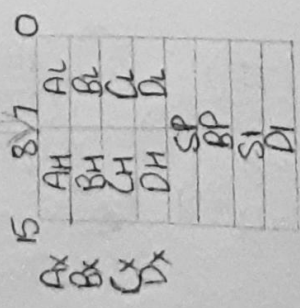 15 8 7 0
AX AH AL
BX BH BL
CX CH CL
DX DH DL
SP
BP
SI
DI